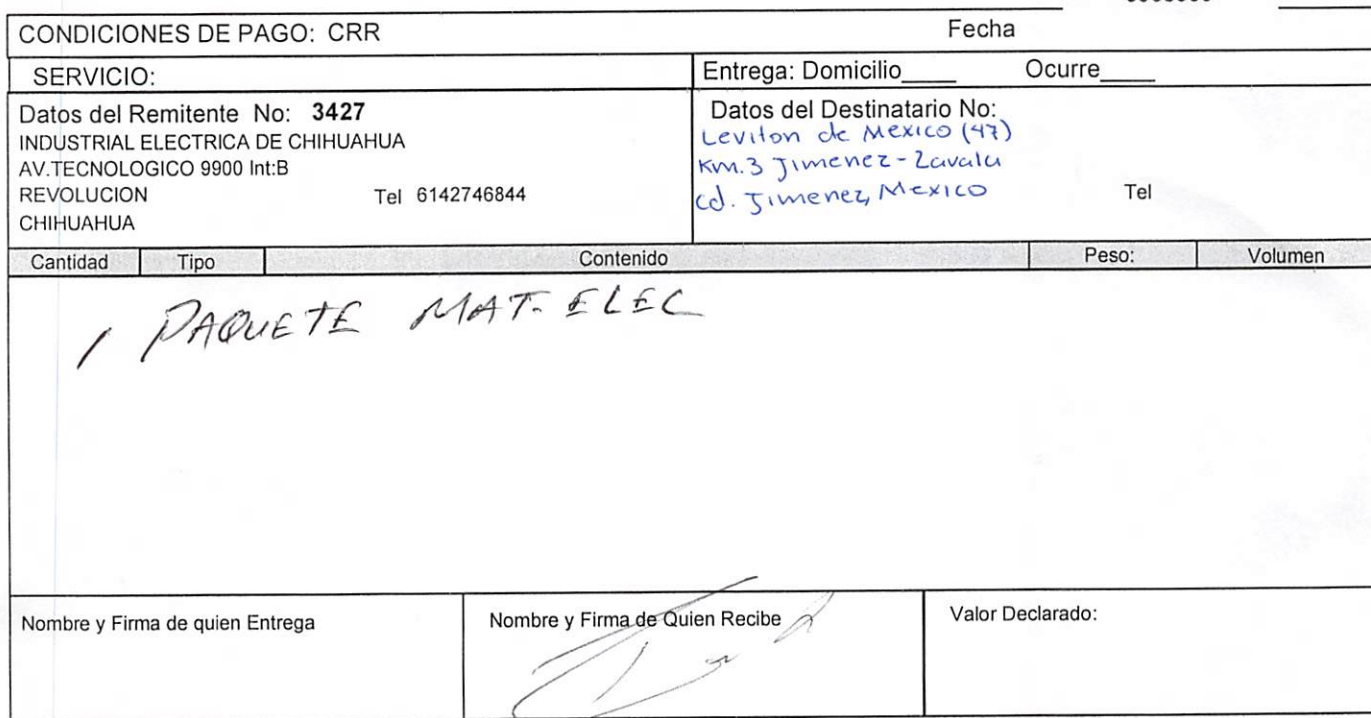 CONDICIONES DE PAGO: CRR Fecha
SERVICIO: Entrega: Domicilio____ Ocurre____
Datos del Remitente No: 3427
INDUSTRIAL ELECTRICA DE CHIHUAHUA
AV.TECNOLOGICO 9900 Int:B
REVOLUCION Tel 6142746844
CHIHUAHUA
Datos del Destinatario No:
Leviton de Mexico (47)
Km.3 Jimenez-Zavala
Cd. Jimenez, Mexico Tel
Cantidad Tipo Contenido Peso: Volumen
1 PAQUETE MAT. ELEC
Nombre y Firma de quien Entrega Nombre y Firma de Quien Recibe Valor Declarado: